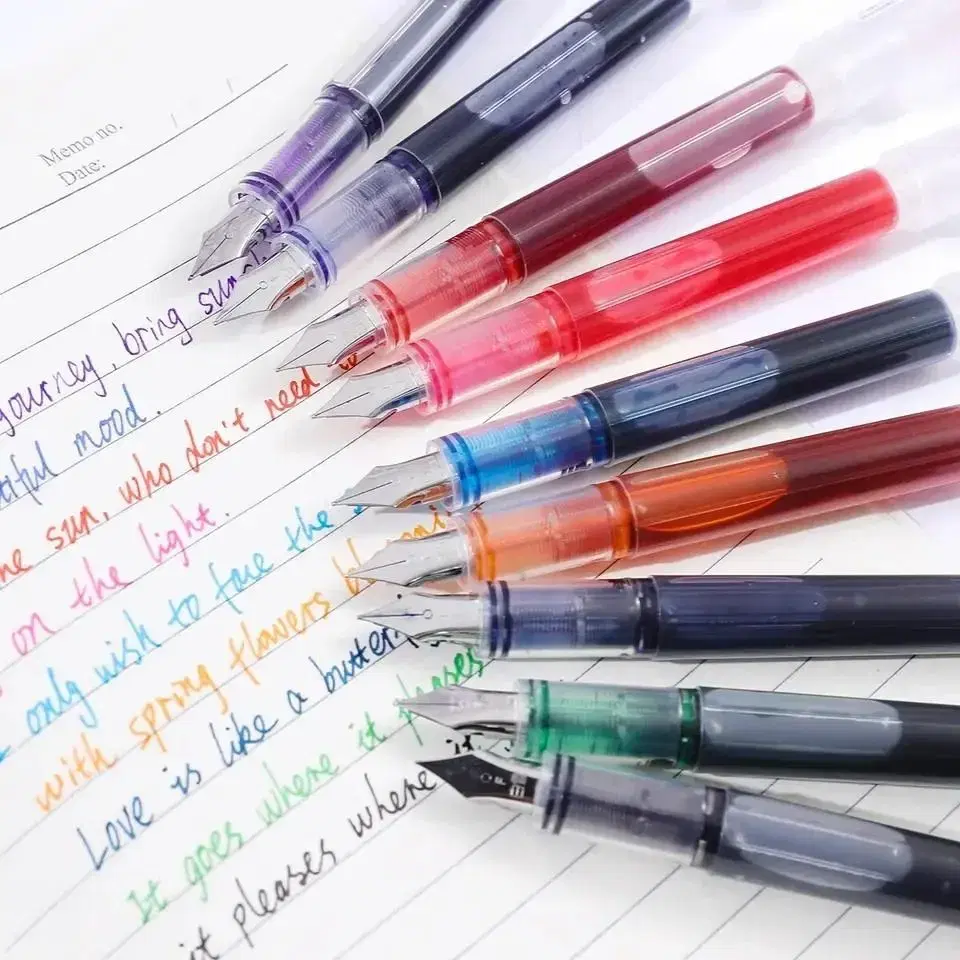 Memo no.
Date:
journey, bring
mood.
sun, who don't need to
on the light.
only wish to face the
with spring flowers
Love is like a
It goes where it pleases
it pleases where it